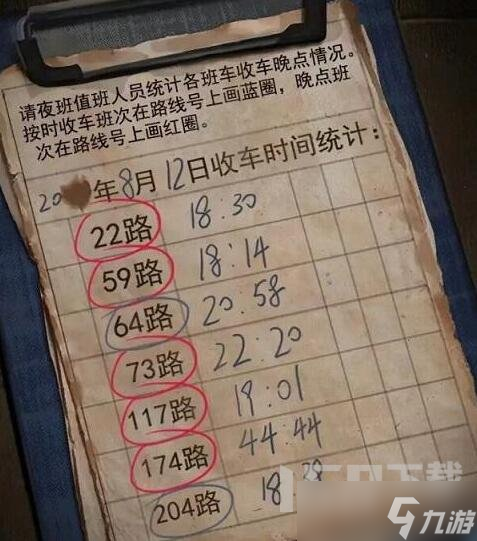 请夜班值班人员统计各班车收车晚点情况。
按时收车班次在路线号上画蓝圈，晚点班
次在路线号上画红圈。
20 年8月12日收车时间统计：
22路 18:30
59路 18:14
64路 20:58
73路 22:20
117路 19:01
174路 44:44
204路 18
下载
九游